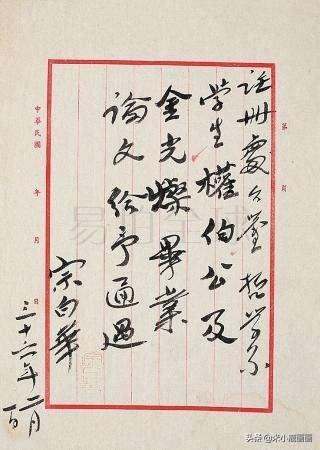 第 頁
註冊處台鉴 哲学系
学生權伯公及
金光燦畢業
論文給予通過
宗白華
三十六年二月一日
中華民國 年 月 日
头条 @米小藏画